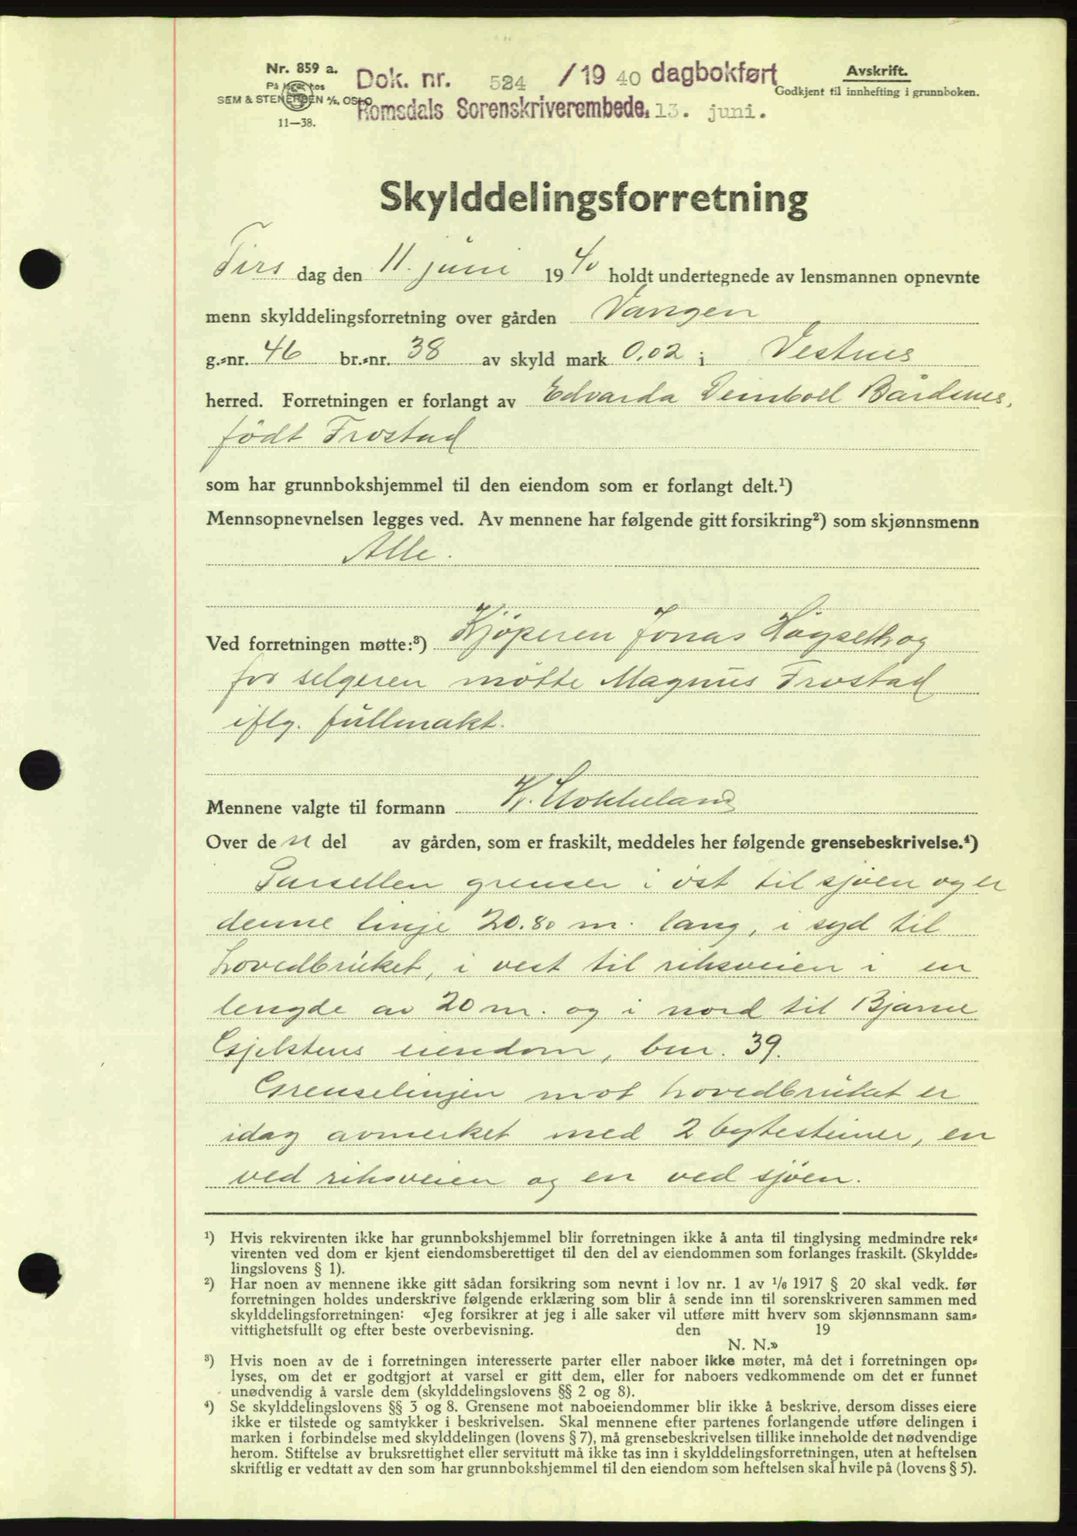 Nr. 859 a.
På lager hos
SEM & STENERSEN A/S, OSLO
11—38.
Dok. nr. 524 /19 40 dagbokført
Romsdals Sorenskriverembede, 13. juni.
Avskrift.
Godkjent til innhefting i grunnboken.
Skylddelingsforretning
Tirs dag den 11. juni 19 40 holdt undertegnede av lensmannen opnevnte
menn skylddelingsforretning over gården Vangen
g.-nr. 46 br.-nr. 38 av skyld mark 0,02 i Vestnes
herred. Forretningen er forlangt av Edvarda Deinboll Bårdsnes,
født Frostad
som har grunnbokshjemmel til den eiendom som er forlangt delt.¹)
Mennsopnevnelsen legges ved. Av mennene har følgende gitt forsikring²) som skjønnsmenn
Alle.
Ved forretningen møtte:³) Kjøperen Jonas Høgseth og
for selgeren møtte Magnus Frostad
iflg. fullmakt.
Mennene valgte til formann K. Stokkeland
Over de n del av gården, som er fraskilt, meddeles her følgende grensebeskrivelse.⁴)
Parsellen grenser i øst til sjøen og er
denne linje 20.80 m. lang, i syd til
hovedbruket, i vest til riksveien i en
lengde av 20 m. og i nord til Bjarne
Gjelstens eiendom, bnr. 39.
Grenselinjen mot hovedbruket er
idag avmerket med 2 bytesteiner, en
ved riksveien og en ved sjøen.
¹) Hvis rekvirenten ikke har grunnbokshjemmel blir forretningen ikke å anta til tinglysing medmindre rek-
virenten ved dom er kjent eiendomsberettiget til den del av eiendommen som forlanges fraskilt. (Skyldde-
lingslovens § 1).
²) Har noen av mennene ikke gitt sådan forsikring som nevnt i lov nr. 1 av 1/6 1917 § 20 skal vedk. før
forretningen holdes underskrive følgende erklæring som blir å sende inn til sorenskriveren sammen med
skylddelingsforretningen: «Jeg forsikrer at jeg i alle saker vil utføre mitt hverv som skjønnsmann sam-
vittighetsfullt og efter beste overbevisning. den 19
N. N.»
³) Hvis noen av de i forretningen interesserte parter eller naboer ikke møter, må det i forretningen op-
lyses, om det er godtgjort at varsel er gitt dem, eller for naboers vedkommende om det er funnet
unødvendig å varsle dem (skylddelingslovens §§ 2 og 8).
⁴) Se skylddelingslovens §§ 3 og 8. Grensene mot naboeiendommer blir ikke å beskrive, dersom disses eiere
ikke er tilstede og samtykker i beskrivelsen. Skal mennene efter partenes forlangende utføre delingen i
marken i forbindelse med skylddelingen (lovens § 7), må grensebeskrivelsen tillike inneholde det nødvendige
herom. Stiftelse av bruksrettighet eller servitutt må ikke tas inn i skylddelingsforretningen, uten at heftelsen
skriftlig er vedtatt av den som har grunnbokshjemmel til den eiendom som heftelsen skal hvile på (lovens § 5).